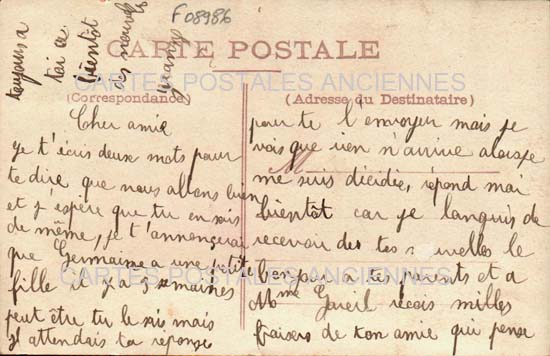 F08986
CARTE POSTALE
CARTES POSTALES ANCIENNES
(Correspondance)
(Adresse du Destinataire)
Cher amie
je t'écris deux mots pour
te dire que nous allons bien
et j'espère que tu en sois
de même, je t'annoncerai
que Germaine a une petite
fille il y a 3 semaines
peut être tu le sais mais
j'attendais ta réponse
pour te l'envoyer mais je
vois que rien n'arrive alors je
me suis décidée, répond moi
bientôt car je languis de
recevoir des tes nouvelles le
bonjour a tes parents et a
Mme reçois milles
baisers de ton amie qui pense
toujours a
toi a
bientôt
des nouvelles
CARTES POSTALES ANCIENNES